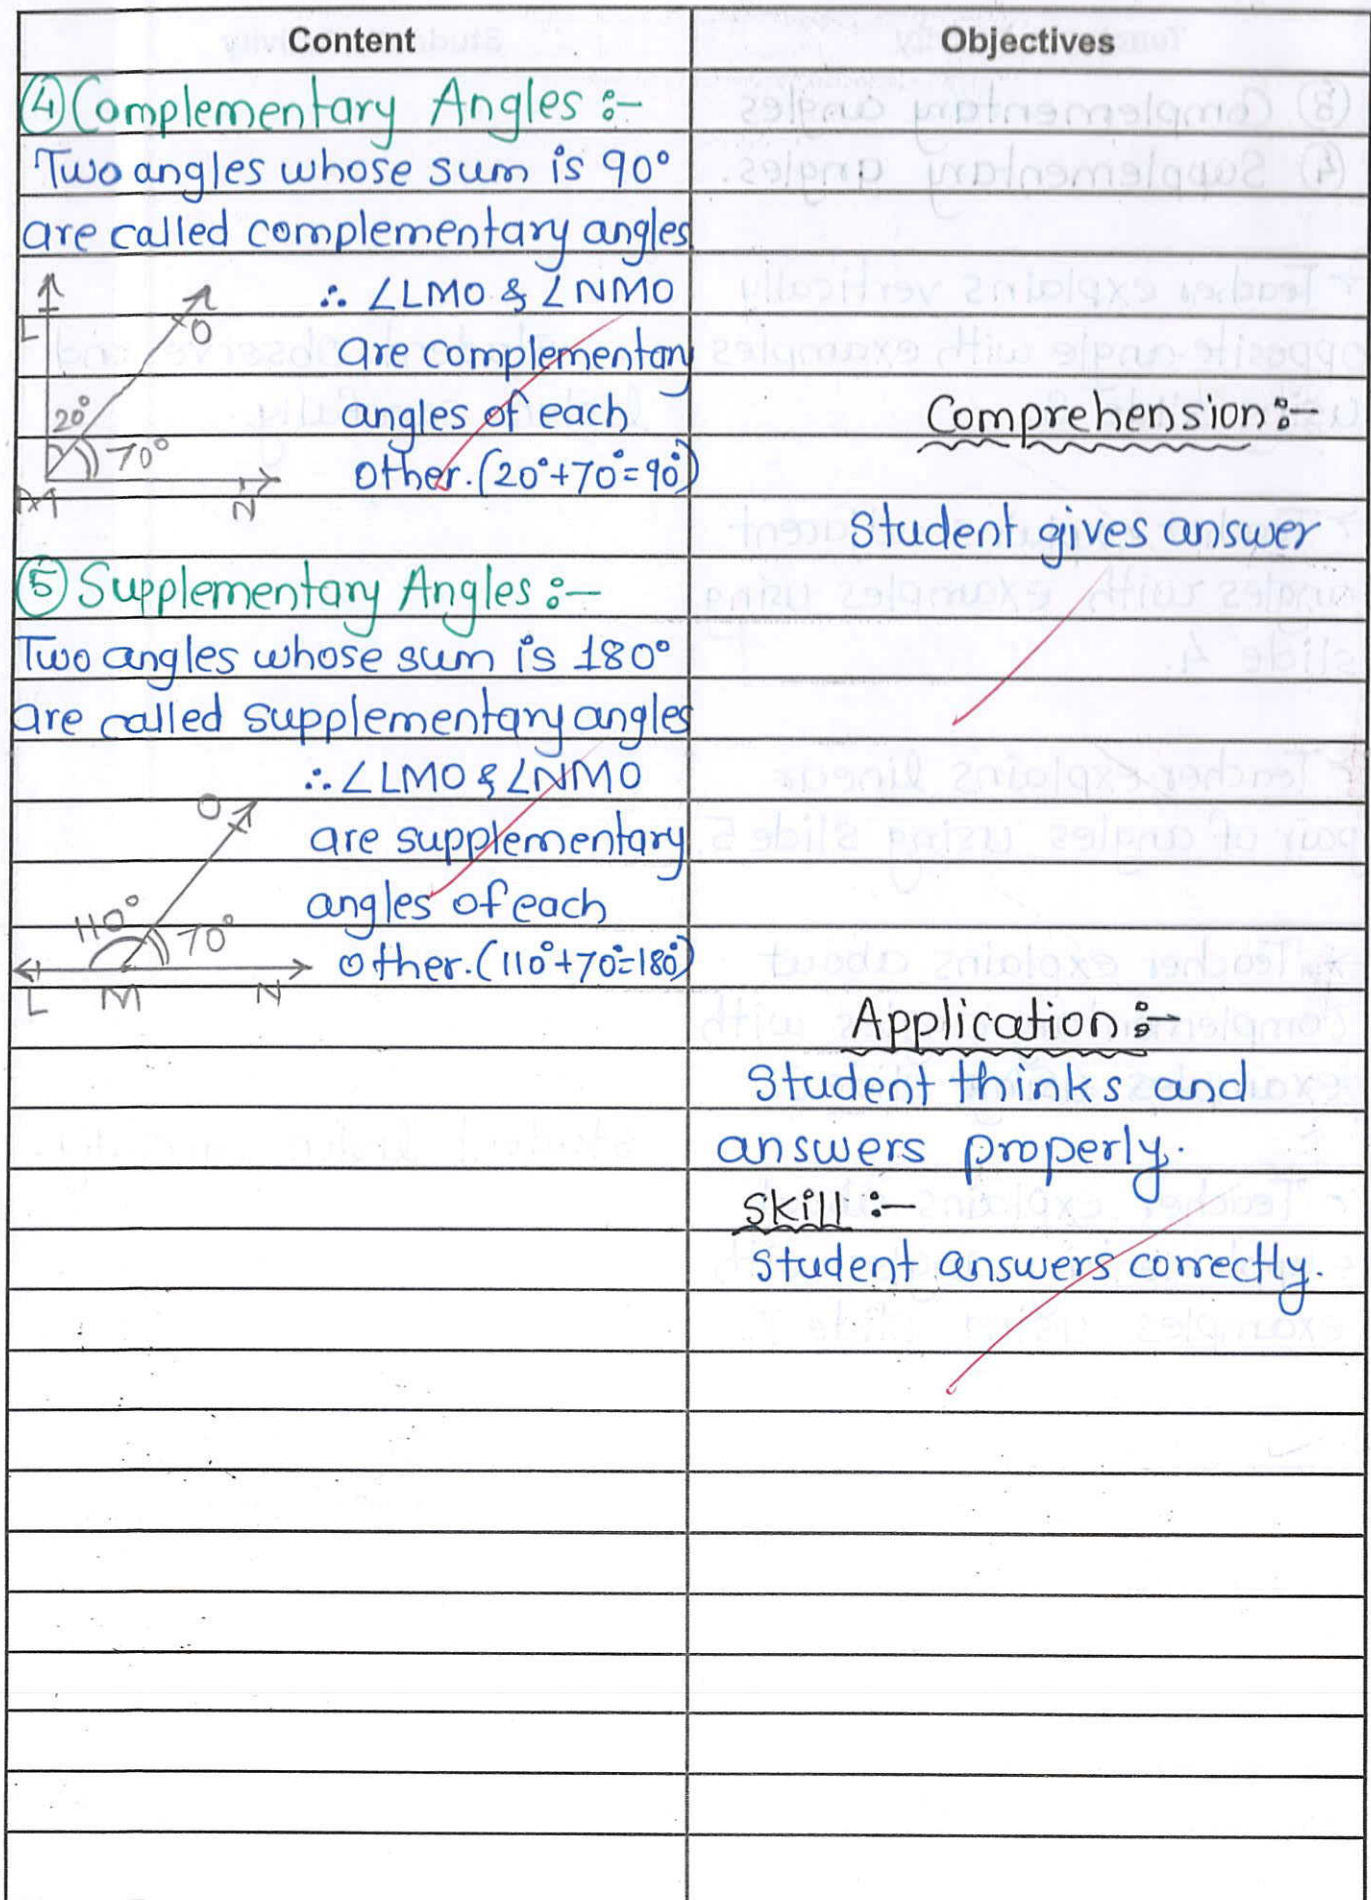 Content
④ Complementary Angles :-
Two angles whose sum is 90°
are called complementary angles
∴ ∠LMO & ∠NMO
are complementary
angles of each
other. (20°+70°=90°)
L
O
20°
70°
M
N
⑤ Supplementary Angles :-
Two angles whose sum is 180°
are called supplementary angles
∴ ∠LMO & ∠NMO
are supplementary
angles of each
other. (110°+70°=180°)
O
110°
70°
L M N
Objectives
Comprehension :-
Student gives answer
Application :-
Student thinks and
answers properly.
Skill :-
Student answers correctly.